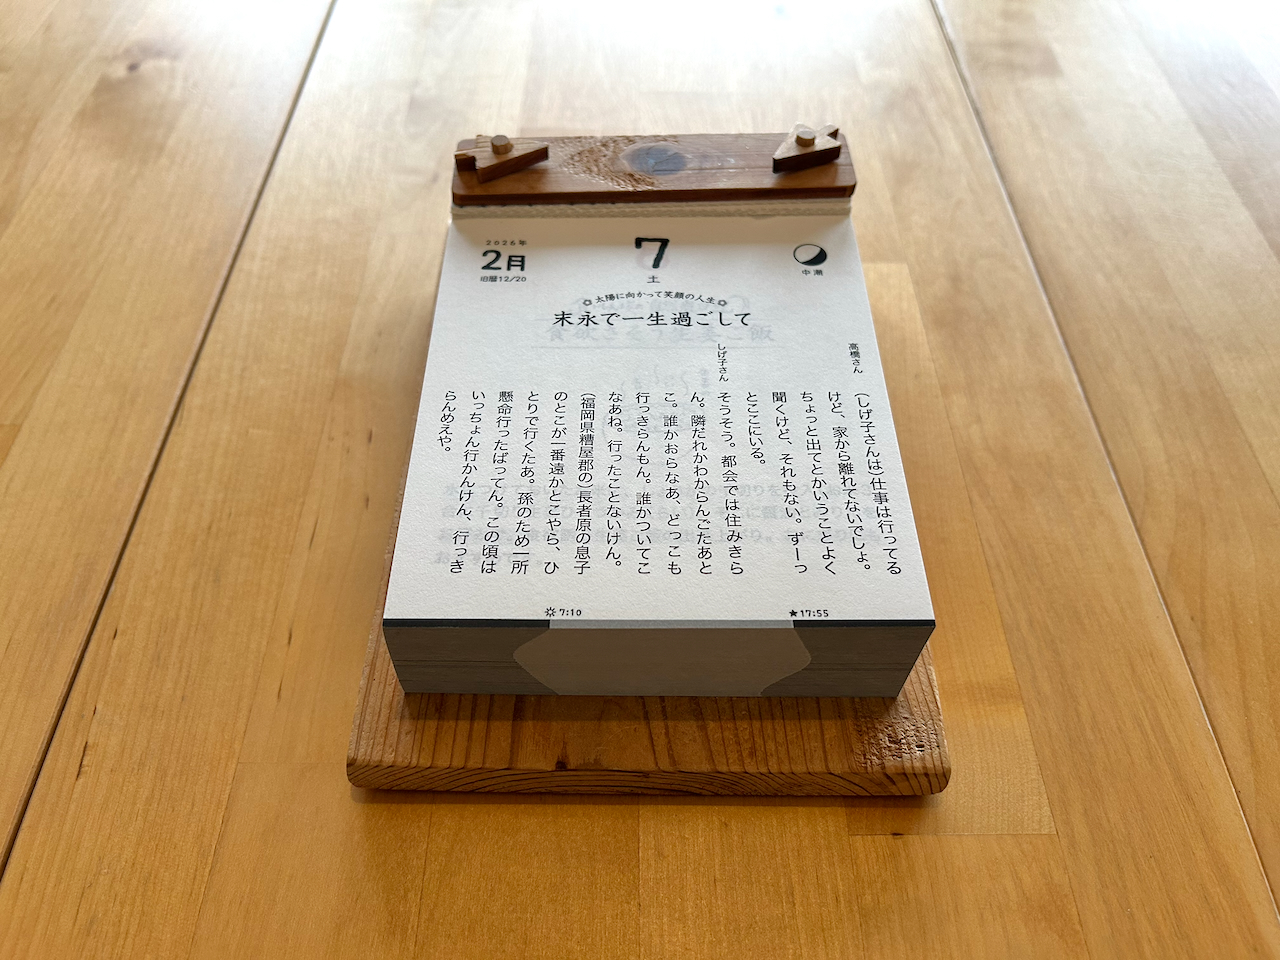 2026年
2月
旧暦12/20
7
土
中潮
太陽に向かって笑顔の人生
末永で一生過ごして
高橋さん
(しげ子さんは)仕事は行ってる
けど、家から離れてないでしょ。
ちょっと出てとかいうことよく
聞くけど、それもない。ずーっ
とここにいる。
しげ子さん
そうそう。都会では住みきら
ん。隣だれかわからんごたあと
こ。誰かおらなあ、どっこも
行っきらんもん。誰かついてこ
なあね。行ったことないけん。
(福岡県糟屋郡の)長者原の息子
のとこが一番遠かとこやら、ひ
とりで行くたあ。孫のため一所
懸命行ったばってん。この頃は
いっちょん行かんけん、行っき
らんめえや。
7:10
★17:55